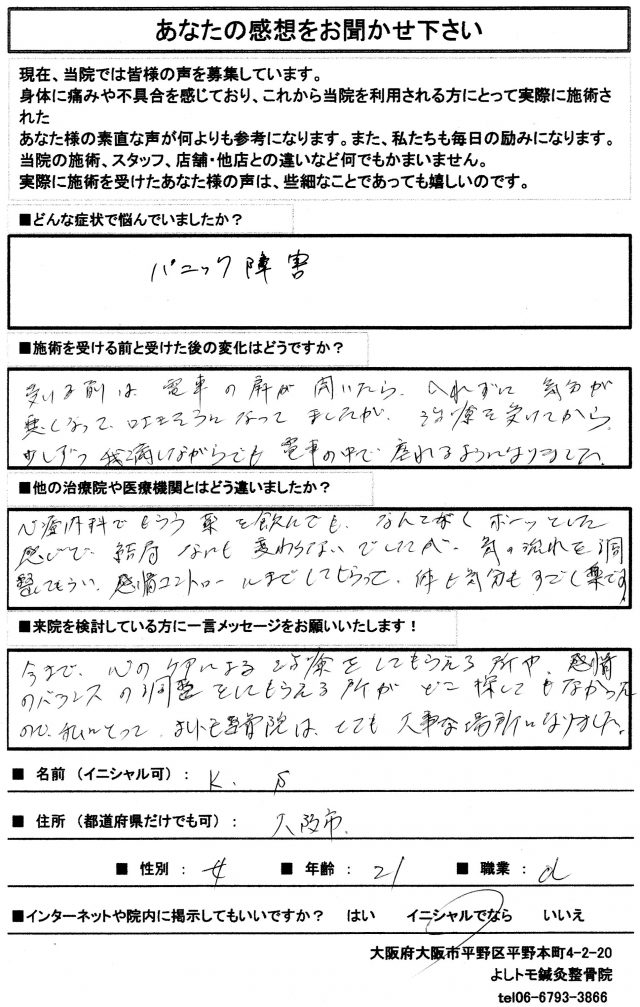 あなたの感想をお聞かせ下さい
現在、当院では皆様の声を募集しています。
身体に痛みや不具合を感じており、これから当院を利用される方にとって実際に施術さ
れた
あなた様の素直な声が何よりも参考になります。また、私たちも毎日の励みになります。
当院の施術、スタッフ、店舗・他店との違いなど何でもかまいません。
実際に施術を受けたあなた様の声は、些細なことであっても嬉しいのです。
■どんな症状で悩んでいましたか？
パニック障害
■施術を受ける前と受けた後の変化はどうですか？
受ける前は 電車の扉が開いたら、入れずに 気分が
悪くなって、吐きそうになって ましたが、治療を受けてから、
少しずつ 我満しながらでも 電車の中で 座れるようになりました。
■他の治療院や医療機関とはどう違いましたか？
心療内科でもらう薬を飲んでも、なんとなくボーッとした
感じで、結局なにも変わらないでしたが、気の流れを調
整してもらい、感情コントロールまでしてもらって、体も気分もすごく楽です
■来院を検討している方に一言メッセージをお願いいたします！
今まで、心のケアによる治療をしてもらえる所や、感情
のバランスの調整をしてもらえる所がどこ探してもなかった
ので、私にとって、よしトモ整骨院は、とても大事な場所になりました。
■ 名前（イニシャル可）： K.
■ 住所（都道府県だけでも可）： 大阪市.
■ 性別： 女 ■ 年齢： 21 ■ 職業：
■インターネットや院内に掲示してもいいですか？ はい イニシャルでなら いいえ
大阪府大阪市平野区平野本町4-2-20
よしトモ鍼灸整骨院
tel06-6793-3866